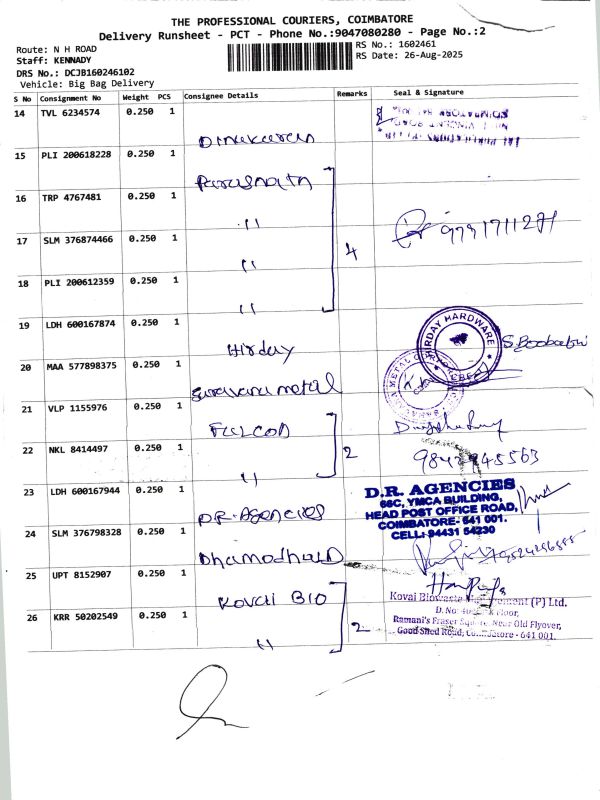 THE PROFESSIONAL COURIERS, COIMBATORE
Delivery Runsheet - PCT - Phone No.:9047080280 - Page No.:2
Route: N H ROAD
RS No.: 1602461
Staff: KENNADY
RS Date: 26-Aug-2025
DRS No.: DCJB160246102
Vehicle: Big Bag Delivery
S No Consignment No Weight PCS Consignee Details Remarks Seal & Signature
14 TVL 6234574 0.250 1 Dinakaran
15 PLI 200618228 0.250 1 Parasnath
16 TRP 4767481 0.250 1 "
17 SLM 376874466 0.250 1 " 4
18 PLI 200612359 0.250 1 "
19 LDH 600167874 0.250 1 Hirday
HIRDAY HARDWARE
20 MAA 577898375 0.250 1 Saravana metal
21 VLP 1155976 0.250 1 Falcon
22 NKL 8414497 0.250 1 " 2
23 LDH 600167944 0.250 1 D.R. Agencies
D.R. AGENCIES
66C, YMCA BUILDING,
HEAD POST OFFICE ROAD,
COIMBATORE- 641 001.
CELL: 94431 54230
24 SLM 376798328 0.250 1
25 UPT 8152907 0.250 1 Kovai Bio
26 KRR 50202549 0.250 1 " 2
Kovai Biowaste Management (P) Ltd.
D. No: Floor,
Ramani's Fraser Square, Near Old Flyover,
Good Shed Road, Coimbatore - 641 001.